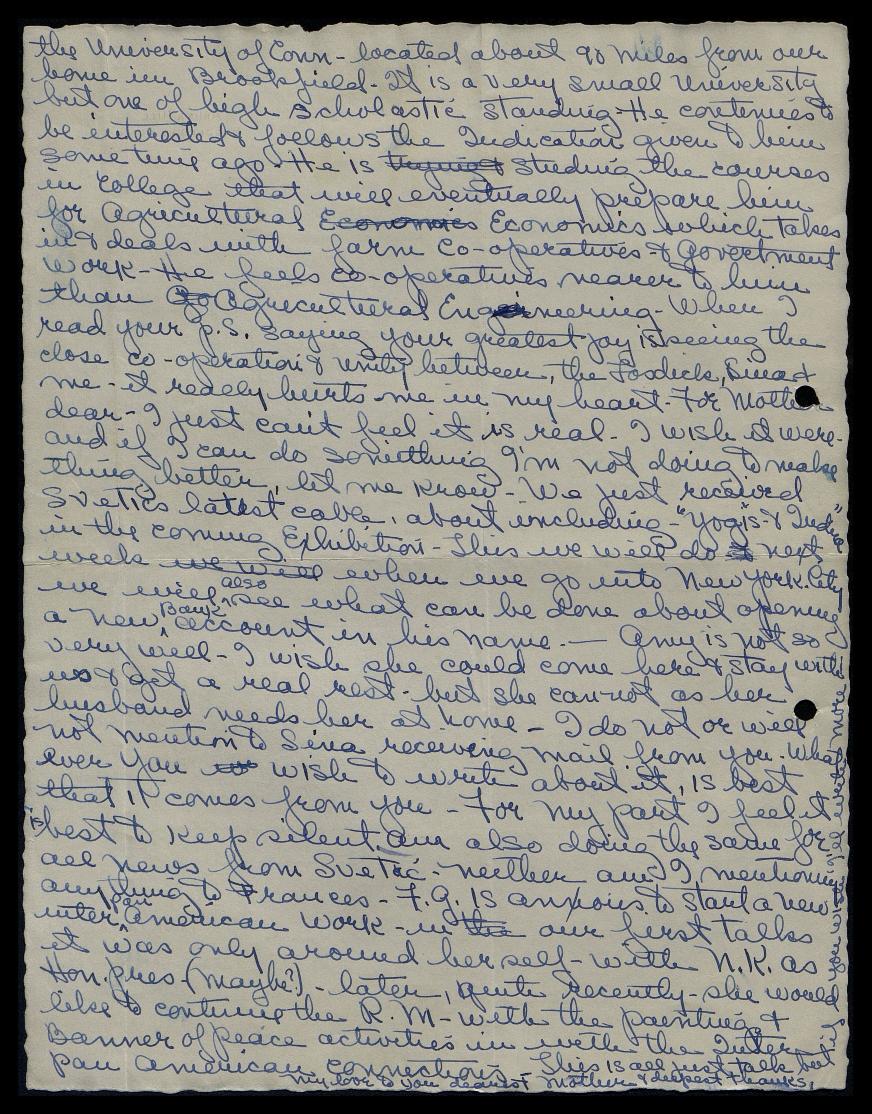 the University of Conn - located about 90 miles from our
home in Brookfield - It is a very small University
but one of high scholastic standing - He contenies to
be interested & follows the Indication given to him
some time ago - He is studing the courses
in College that will eventually prepare him
for Agricultural Economics Economics which takes
in & deals with farm Co-operatives - & Government
work - He feels co-operatives nearer to him
than Agricultural Engeneering - When I
read your p.s. saying your greatest joy is seeing the
close co-operation & unity between, the Fosdicks, Sina &
me - it really hurts me in my heart - For Mother
dear - I just can't feel it is real - I wish it were -
and if I can do something I'm not doing to make
things better, let me know - We just received
Svetics latest cable, about including - "Yogis - & India"
in the coming Exhibition - This we will do next
week we will when we go into New York City
we will also see what can be done about opening
a new Bank account in his name. - Amy is not so
very well - I wish she could come here & stay with
us & get a real rest - but she cannot as her
husband needs her at home - I do not or will
not mention to Sina receiving mail from you - What
ever you wish to write about it, is best
that it comes from you - For my part I feel it
is best to keep silent. Am also doing the same for
all news from Svetic - neither am I, mentioning
anything to Frances - F.G. is anxious to start a new
inter pan American work - in the our first talks
it was only around herself - with N.K. as
Hon. pres - (maybe?) - later, quite recently - she would
like to continue the R.M - with the painting &
Banner of peace activities in with the Inter
pan American connections - This is all just talk but
if you wish, I'll write more
my love to you dearest Mother & deepest thanks,